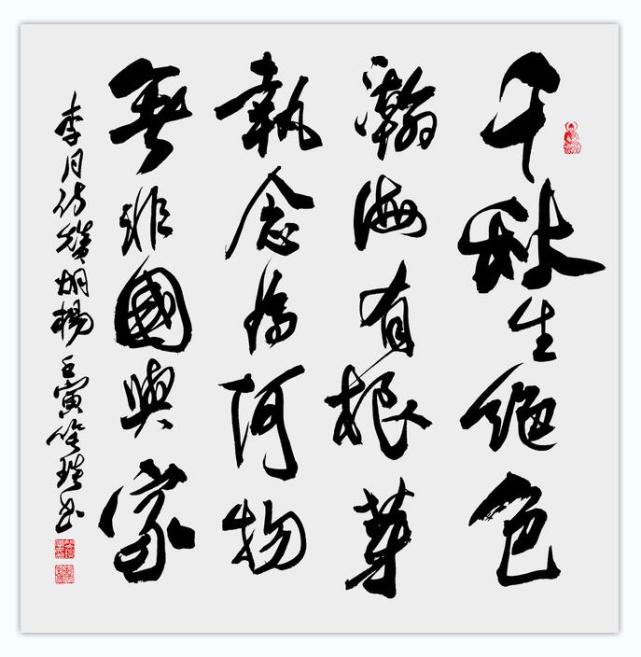 千秋生絕色
瀚海有根芽
執念為何物
無非國與家
李月詩贊胡楊 壬寅 書